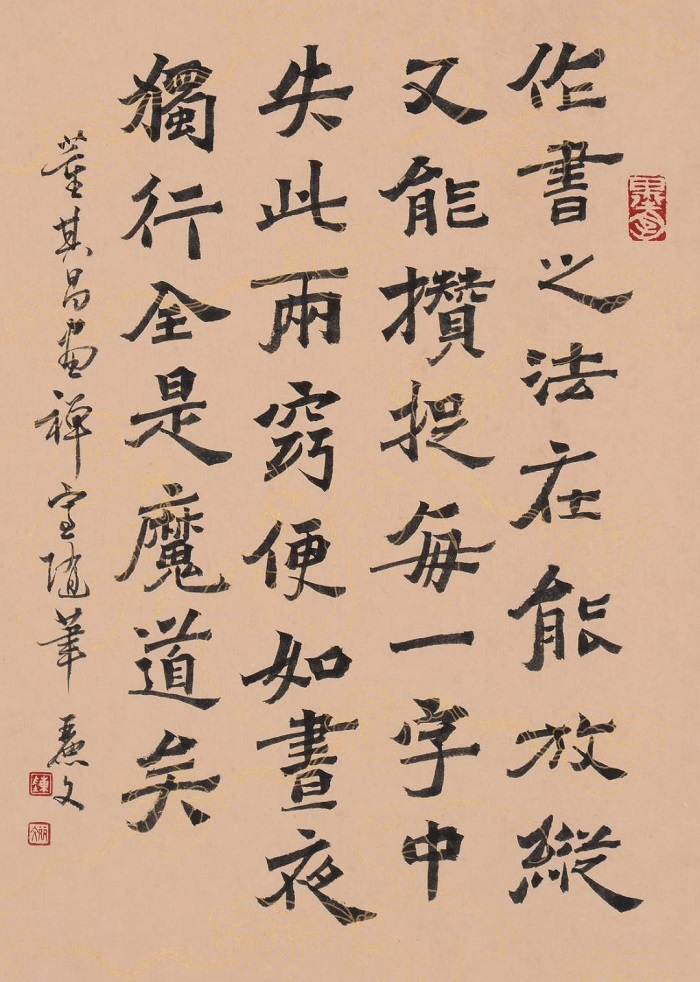 作書之法在能放縱
又能攢捉每一字中
失此兩窍便如晝夜
獨行全是魔道矣
董其昌畫禪室隨筆 麗文